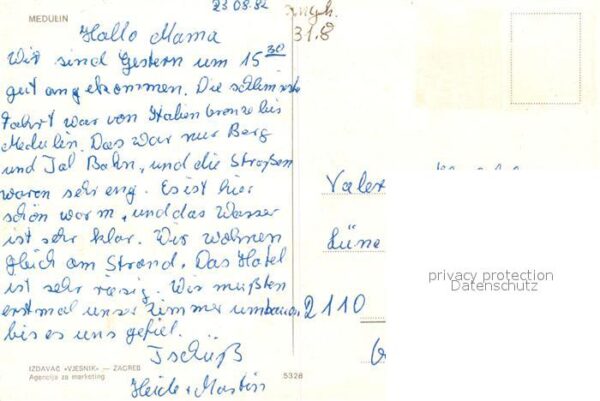 23.08.82
MEDULIN
31.8
Hallo Mama
Wir sind Gestern um 15 30
gut angekommen. Die schlimmste
Fahrt war von Italien bronze bis
Medulin. Das war nur Berg
und Tal Bahn, und die Straßen
waren sehr eng. Es ist hier
schön warm, und das Wasser
ist sehr klar. Wir wohnen
gleich am Strand. Das Hotel
ist sehr riesig. Wir mußten
erstmal unser Zimmer umbauen,
bis es uns gefiel.
Tschüß
Heide + Martin
Valer
Lüne
2110
privacy protection
Datenschutz
IZDAVAČ »VJESNIK« — ZAGREB
Agencija za marketing
5328